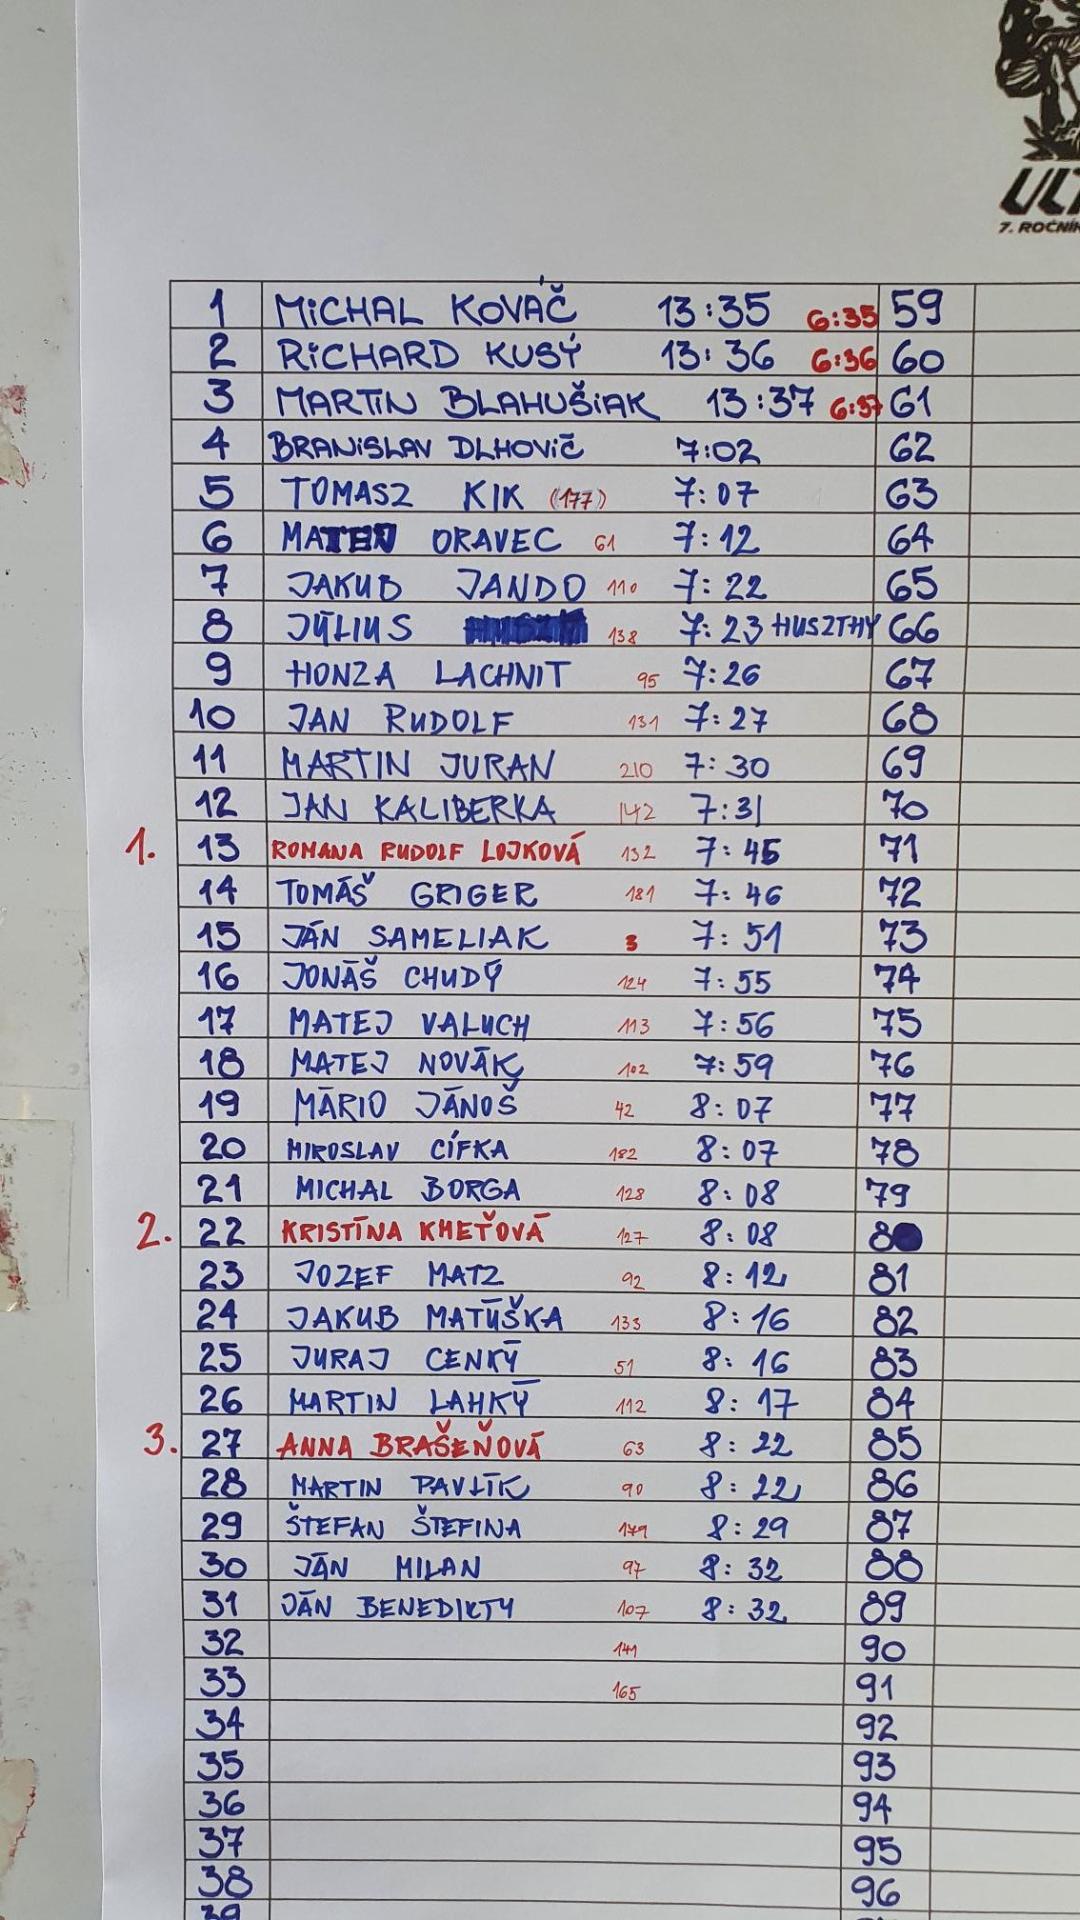 ULT
7. ROČNÍK
1 MICHAL KOVÁČ 13:35 6:35 59
2 RICHARD KUSÝ 13:36 6:36 60
3 MARTIN BLAHUŠIAK 13:37 6:37 61
4 BRANISLAV DLHOVIČ 7:02 62
5 TOMASZ KIK (177) 7:07 63
6 MATEJ ORAVEC 61 7:12 64
7 JAKUB JANDO 110 7:22 65
8 JÚLIUS 138 7:23 HUSZTHY 66
9 HONZA LACHNIT 95 7:26 67
10 JAN RUDOLF 131 7:27 68
11 MARTIN JURAN 210 7:30 69
12 JAN KALIBERKA 142 7:31 70
1. 13 ROMANA RUDOLF LOJKOVÁ 132 7:45 71
14 TOMÁŠ GRIGER 181 7:46 72
15 JÁN SAMELIAK 3 7:51 73
16 JONÁŠ CHUDÝ 124 7:55 74
17 MATEJ VALUCH 113 7:56 75
18 MATEJ NOVÁK 102 7:59 76
19 MÁRIO JÁNOŠ 42 8:07 77
20 MIROSLAV CÍFKA 182 8:07 78
21 MICHAL BORGA 128 8:08 79
2. 22 KRISTÍNA KHEŤOVÁ 127 8:08 80
23 JOZEF MATZ 92 8:12 81
24 JAKUB MATÚŠKA 133 8:16 82
25 JURAJ CENKÝ 51 8:16 83
26 MARTIN LAHKÝ 112 8:17 84
3. 27 ANNA BRAŠEŇOVÁ 63 8:22 85
28 MARTIN PAVLÍK 90 8:22 86
29 ŠTEFAN ŠTEFINA 179 8:29 87
30 JÁN MILAN 97 8:32 88
31 JÁN BENEDIKTY 107 8:32 89
32 141 90
33 165 91
34 92
35 93
36 94
37 95
38 96
39